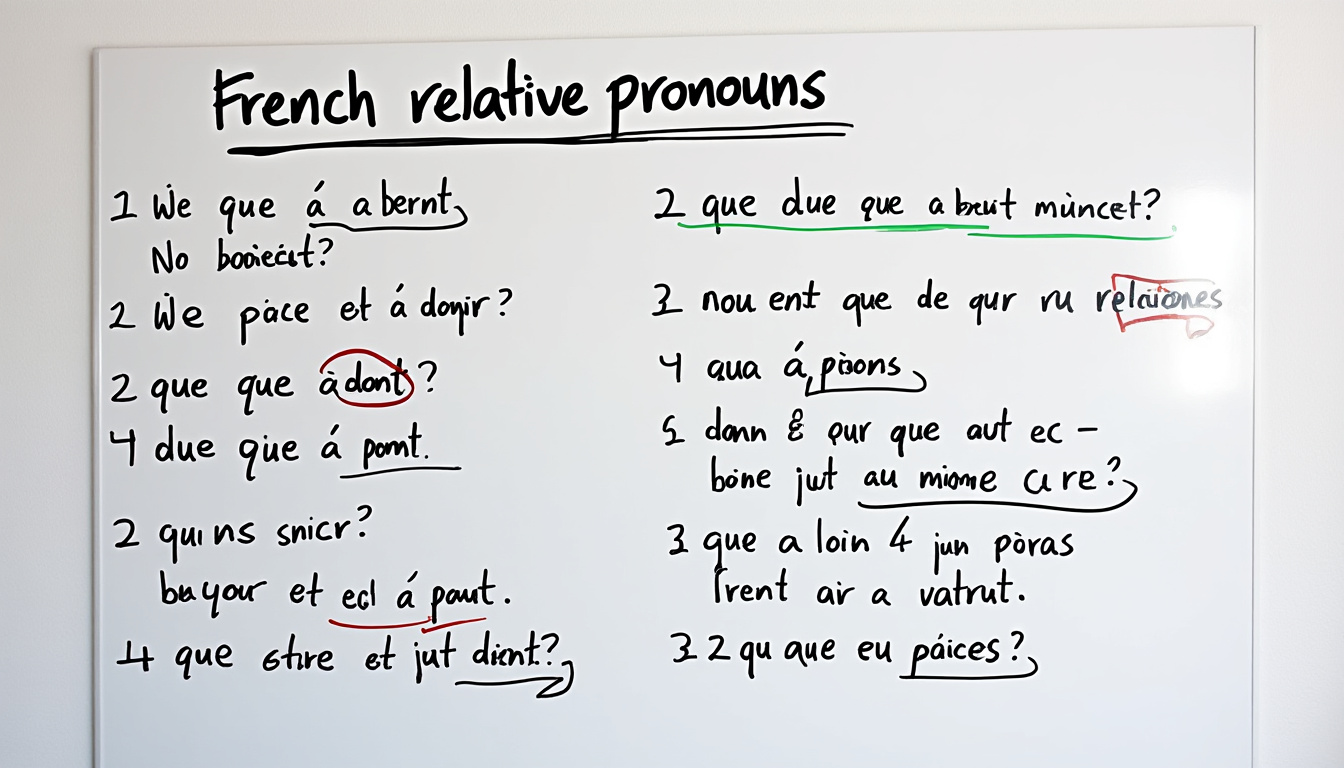 French relative pronouns
1 We que á a bernt
No
2 We pice et á donjir?
2 que que àdont?
4 due que á pomt.
2 quins snicr?
bayour et ecl á paut.
4 que ethre et jut dient?
2 que due que a beut muncet?
3 nou ent que de qur ru
4 qua á, pisons
5 donn & pur que aut ec –
bone jut au miome cu re?
3 que a loin 4 jun pòras
Irent air a vatrut.
3 2 qu que eu páices?